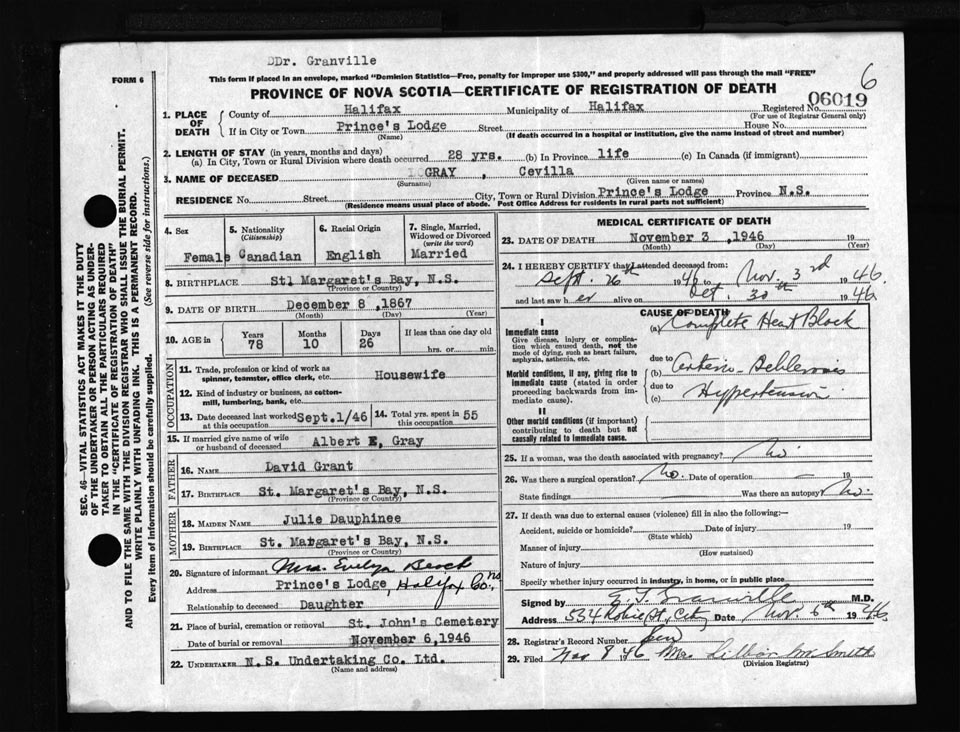 DDr. Granville
FORM 6
This form if placed in an envelope, marked "Dominion Statistics—Free, penalty for improper use $300," and properly addressed will pass through the mail "FREE"
6
PROVINCE OF NOVA SCOTIA—CERTIFICATE OF REGISTRATION OF DEATH
1. PLACE OF DEATH { County of Halifax Municipality of Halifax Registered No. 06019
(For use of Registrar General only)
If in City or Town Prince's Lodge Street House No.
(Name) (If death occurred in a hospital or institution, give the name instead of street and number)
2. LENGTH OF STAY (in years, months and days)
(a) In City, Town or Rural Division where death occurred 28 yrs. (b) In Province life (c) In Canada (if immigrant)
3. NAME OF DECEASED GRAY , Cevilla
(Surname) (Given name or names)
RESIDENCE No. Street City, Town or Rural Division Prince's Lodge Province N.S.
(Residence means usual place of abode. Post Office Address for residents in rural parts not sufficient)
4. Sex 5. Nationality (Citizenship) 6. Racial Origin 7. Single, Married, Widowed or Divorced (write the word)
Female Canadian English Married
8. BIRTHPLACE Stl Margaret's Bay, N.S.
(Province or Country)
9. DATE OF BIRTH December 8, 1867
(Month) (Day) (Year)
10. AGE in { Years Months Days If less than one day old
78 10 26 hrs. or min.
OCCUPATION
11. Trade, profession or kind of work as spinner, teamster, office clerk, etc. Housewife
12. Kind of industry or business, as cotton-mill, lumbering, bank, etc.
13. Date deceased last worked at this occupation Sept.1/46 14. Total yrs. spent in this occupation 55
15. If married give name of wife or husband of deceased Albert E, Gray
FATHER
16. NAME David Grant
17. BIRTHPLACE St. Margaret's Bay, N.S.
(Province or Country)
MOTHER
18. MAIDEN NAME Julie Dauphinee
19. BIRTHPLACE St. Margaret's Bay, N.S.
(Province or Country)
20. Signature of informant Mrs. Evelyn
Address Prince's Lodge, Halifax Co., NS
Relationship to deceased Daughter
21. Place of burial, cremation or removal St. John's Cemetery
Date of burial or removal November 6, 1946
22. UNDERTAKER N.S. Undertaking Co. Ltd.
(Name and address)
MEDICAL CERTIFICATE OF DEATH
23. DATE OF DEATH November 3 ,1946 19
(Month) (Day) (Year)
24. I HEREBY CERTIFY that I attended deceased from:
Sept. 26th 1946 to Nov. 3rd 1946
and last saw her alive on Oct. 30th 1946.
CAUSE OF DEATH
I
Immediate cause
Give disease, injury or complication which caused death, not the mode of dying, such as heart failure, asphyxia, asthenia, etc.
(a) Complete Heart Block
due to
Morbid conditions, if any, giving rise to immediate cause (stated in order proceeding backwards from immediate cause).
(b) Arterio-Schlerosis
due to
(c) Hypertension
II
Other morbid conditions (if important) contributing to death but not causally related to immediate cause.
25. If a woman, was the death associated with pregnancy? No
26. Was there a surgical operation? No. Date of operation — 19
State findings Was there an autopsy? No.
27. If death was due to external causes (violence) fill in also the following:—
Accident, suicide or homicide? Date of injury 19
(State which)
Manner of injury
(How sustained)
Nature of injury
Specify whether injury occurred in industry, in home, or in public place
Signed by E. T. Granville M.D.
Address 534 Robie St. City Date Nov. 6th 1946
28. Registrar's Record Number
29. Filed Nov 8 46 Mrs. Smith
(Division Registrar)
SEC. 46—VITAL STATISTICS ACT MAKES IT THE DUTY
OF THE UNDERTAKER OR PERSON ACTING AS UNDER-
TAKER TO OBTAIN ALL THE PARTICULARS REQUIRED
IN THE "CERTIFICATE OF REGISTRATION OF DEATH"
AND TO FILE THE SAME WITH THE DIVISION REGISTRAR WHO SHALL ISSUE THE BURIAL PERMIT.
WRITE PLAINLY WITH UNFADING INK. THIS IS A PERMANENT RECORD.
Every item of information should be carefully supplied. (See reverse side for instructions.)